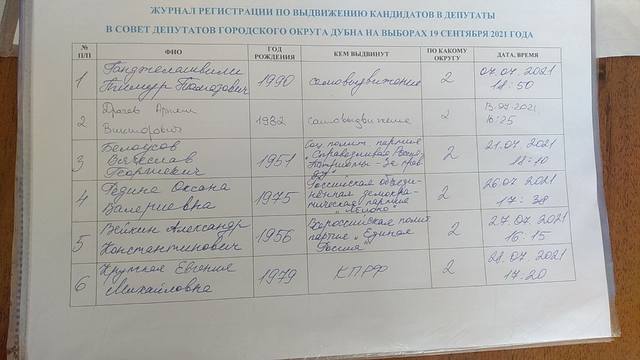 ЖУРНАЛ РЕГИСТРАЦИИ ПО ВЫДВИЖЕНИЮ КАНДИДАТОВ В ДЕПУТАТЫ
В СОВЕТ ДЕПУТАТОВ ГОРОДСКОГО ОКРУГА ДУБНА НА ВЫБОРАХ 19 СЕНТЯБРЯ 2021 ГОДА
№ П/П ФИО ГОД РОЖДЕНИЯ КЕМ ВЫДВИНУТ ПО КАКОМУ ОКРУГУ ДАТА, ВРЕМЯ
1 1990 самовыдвижение 2 07.07.2021
18:50
2 Драчев Артем 1982 самовыдвижение 2 13.07.2021
Викторович 16:25
3 Белоусов 1951 Соц. полит. партия 2 21.07.2021
Вячеслав "Справедливая Россия
Георгиевич Патриоты - За прав
ду" 11:10
4 Родина Оксана 1975 Российская объеди- 2 26.07.2021
Валериевна нённая демокра-
тическая партия
"Яблоко" 17:38
5 Вейкин Александр 1956 Всероссийская полит 2 27.07.2021
Константинович партия "Единая
Россия" 16:15
6 Евгения 1979 КПРФ 2 28.07.2021
Михайловна 17:20